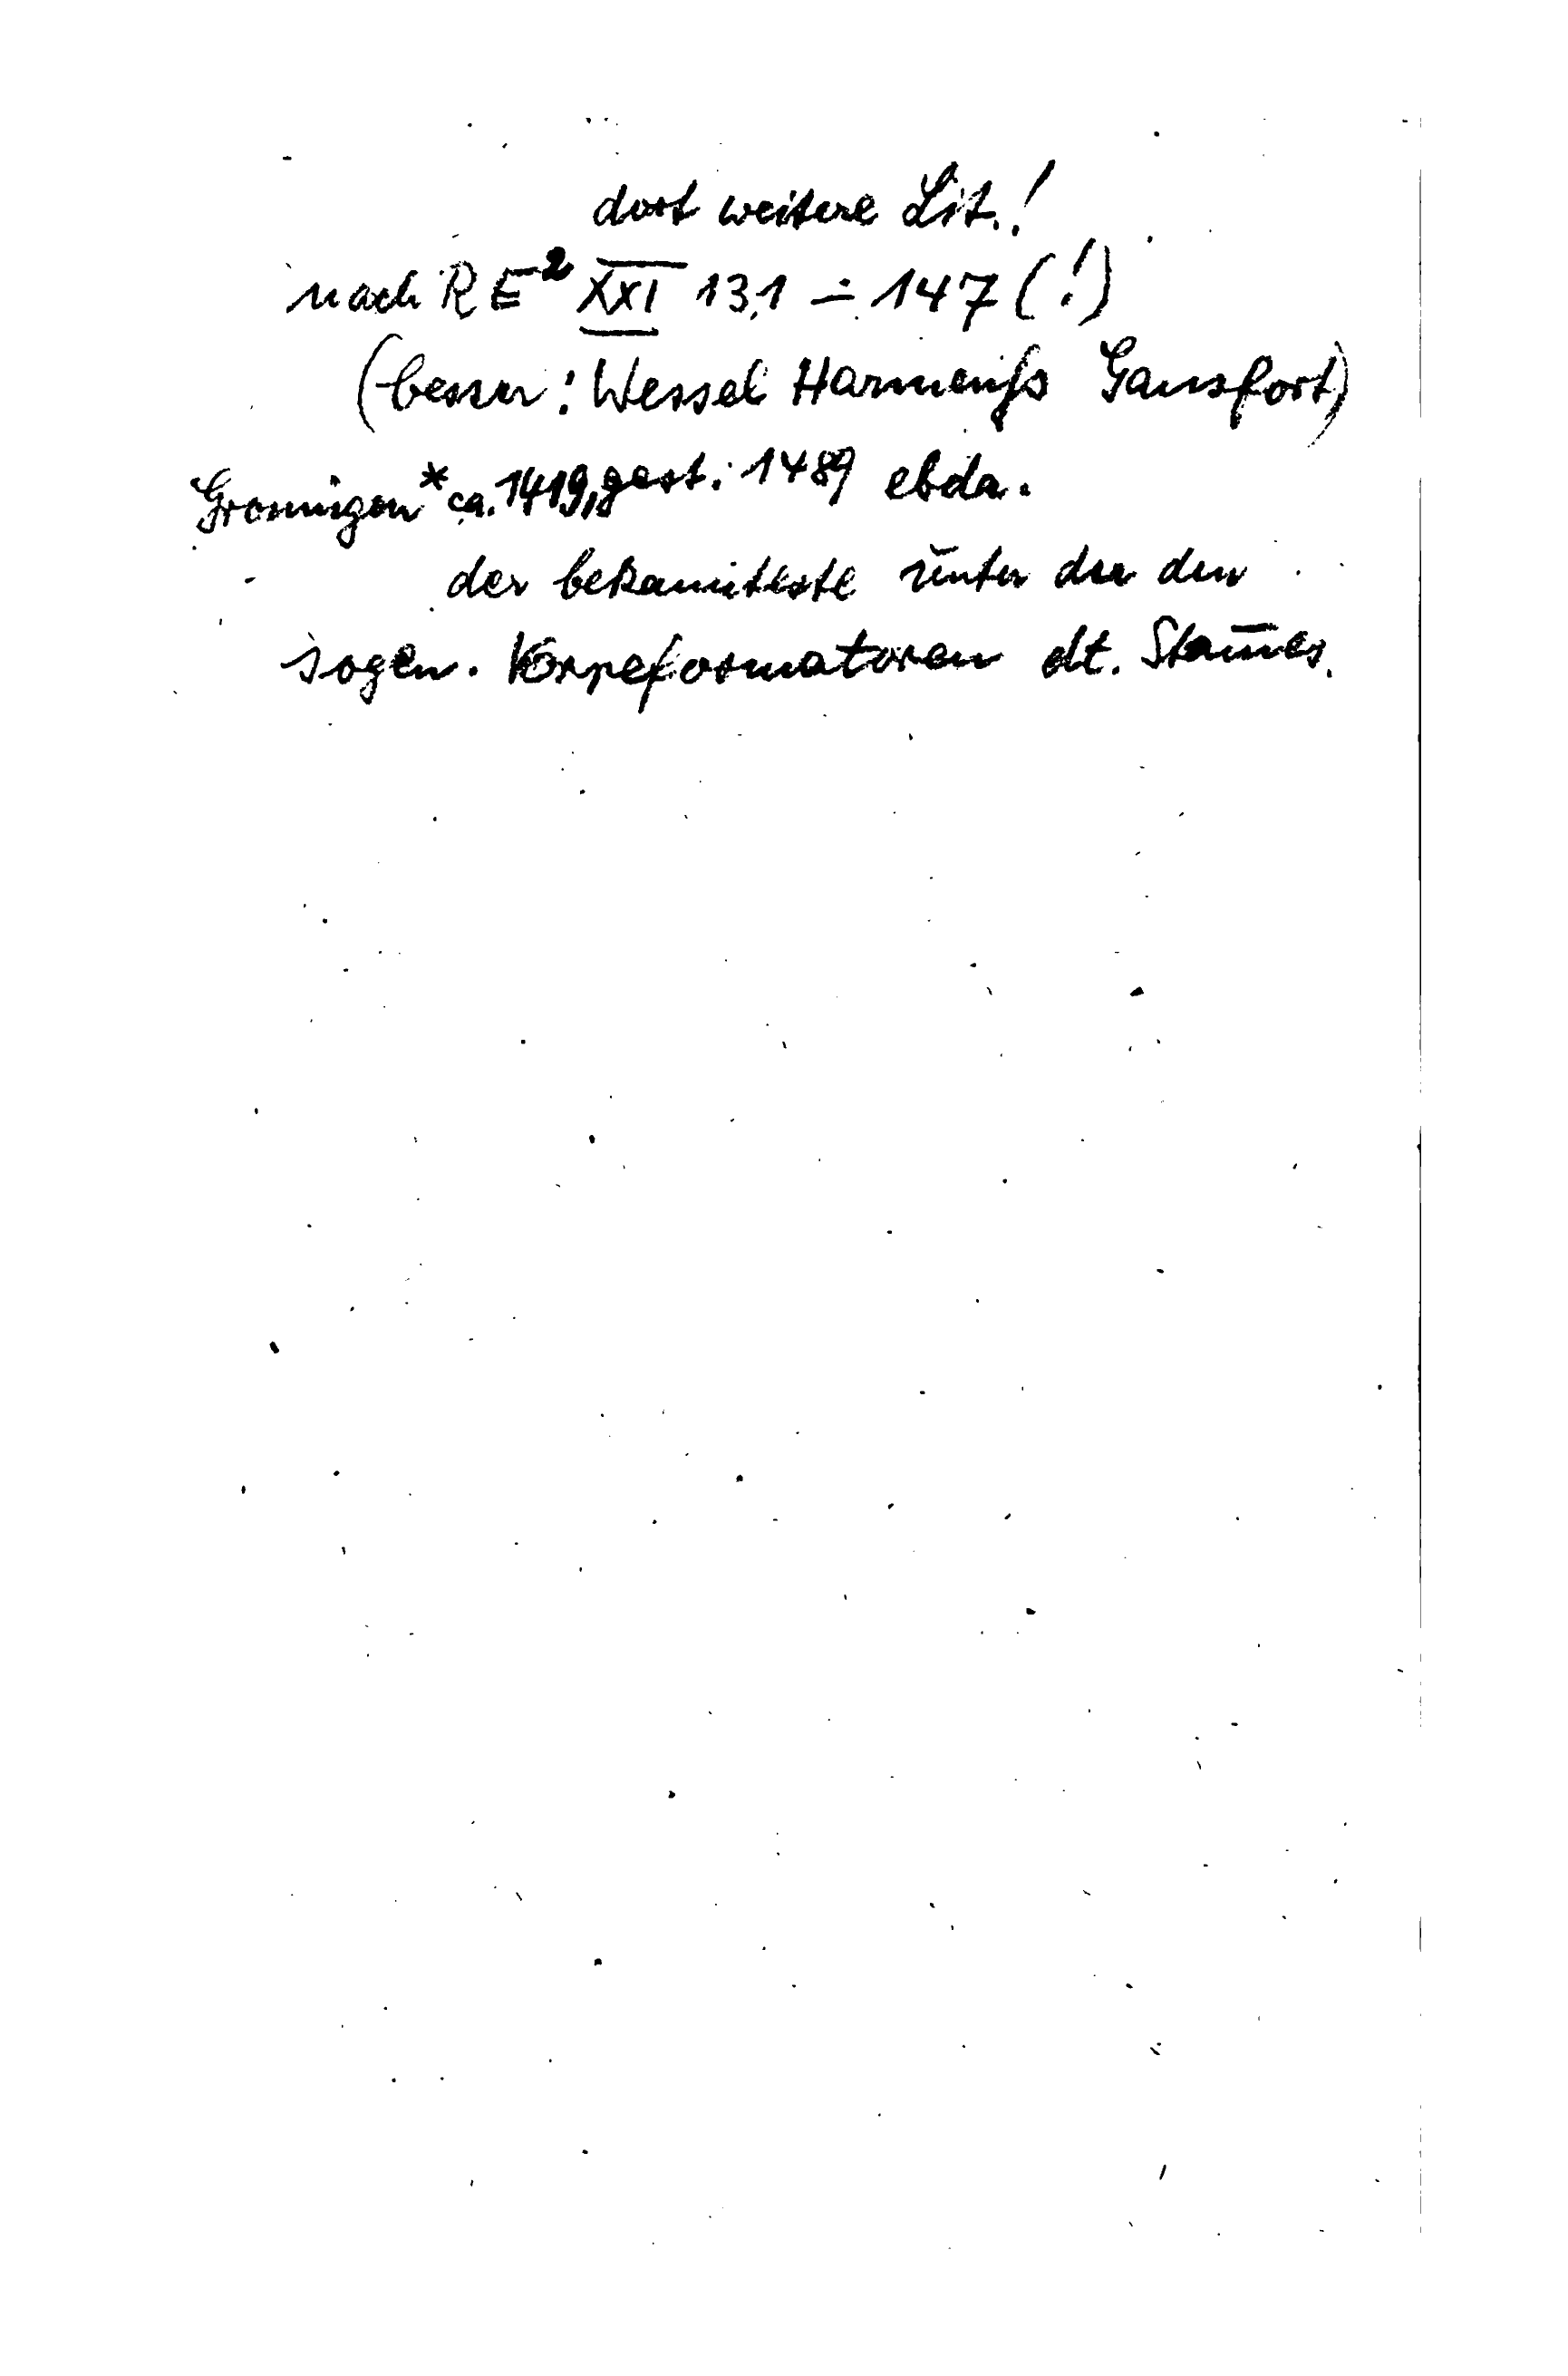 dort weitere Lit.!
nach RE² XXI 131 ÷ 147 (!)
(besser: Wessel Harmenſs Gansfort)
Groningen * ca. 1419, gest. 1489 ebda.
der bekannteste unter der den
sogen. Vorreformatoren dt. Stam̅es.